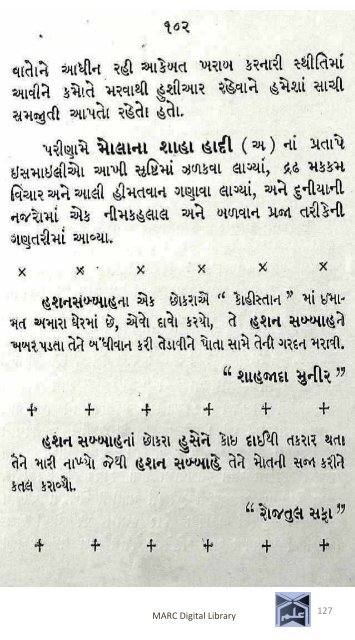 ૧૦૨
વાતોને આધીન રહી આકેબત ખરાબ કરનારી સ્થીતિમાં
આવીને કમોતે મરવાથી હુશીઆર રહેવાને હમેશાં સાચી
સમજુતી આપતો રહેતો હતો.
પરીણામે મોલાના શાહા હાદી (અ) નાં પ્રતાપે
ઇસમાઈલીઓ આખી સૃષ્ટિમાં ઝળકવા લાગ્યાં, દ્રઢ મક્કમ
વિચાર અને આલી હીમતવાન ગણાવા લાગ્યાં, અને દુનીયાની
નજરોમાં એક નીમકહલાલ અને બળવાન પ્રજા તરીકેની
ગણતરીમાં આવ્યા.
× × × × × ×
હશનસબ્બાહના એક છોકરાએ “ કોહીસ્તાન ” માં ઇમા-
મત અમારા ઘેરમાં છે, એવો દાવો કરયો, તે હશન સબ્બાહને
ખબર પડતા તેને બંધીવાન કરી તેડાવીને પોતા સામે તેની ગરદન મરાવી.
“ શાહજાદા મુનીર ”
+ + + + + +
હશન સબ્બાહનાં છોકરા હુસેને કોઇ દાઈથી તકરાર થતા
તેને મારી નાખ્યો જેથી હશન સબ્બાહે તેને મોતની સજા કરીને
કતલ કરાવ્યો.
“ રોજતુલ સફા ”
+ + + + + +
MARC Digital Library
علم
127